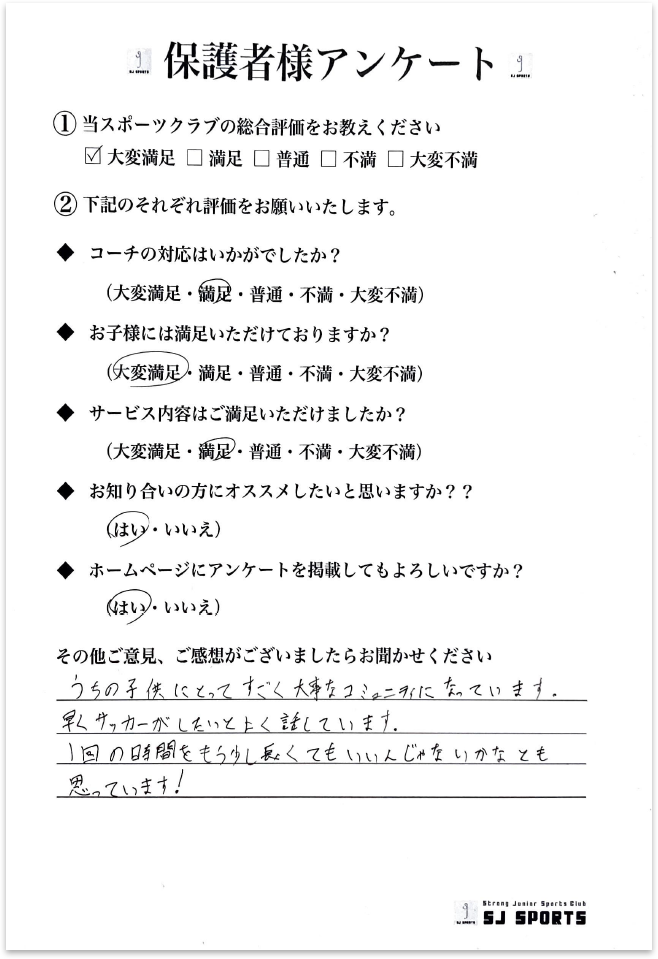 SJ SPORTS 保護者様アンケート SJ SPORTS
① 当スポーツクラブの総合評価をお教えください
☑ 大変満足 □ 満足 □ 普通 □ 不満 □ 大変不満
② 下記のそれぞれ評価をお願いいたします。
◆ コーチの対応はいかがでしたか？
（大変満足・満足・普通・不満・大変不満）
◆ お子様には満足いただけておりますか？
（大変満足・満足・普通・不満・大変不満）
◆ サービス内容はご満足いただけましたか？
（大変満足・満足・普通・不満・大変不満）
◆ お知り合いの方にオススメしたいと思いますか？？
（はい・いいえ）
◆ ホームページにアンケートを掲載してもよろしいですか？
（はい・いいえ）
その他ご意見、ご感想がございましたらお聞かせください
うちの子供にとってすごく大事なコミュニティになっています。
早くサッカーがしたいとよく話しています。
1回の時間をもう少し長くてもいいんじゃないかなとも
思っています！
Strong Junior Sports Club
SJ SPORTS SJ SPORTS